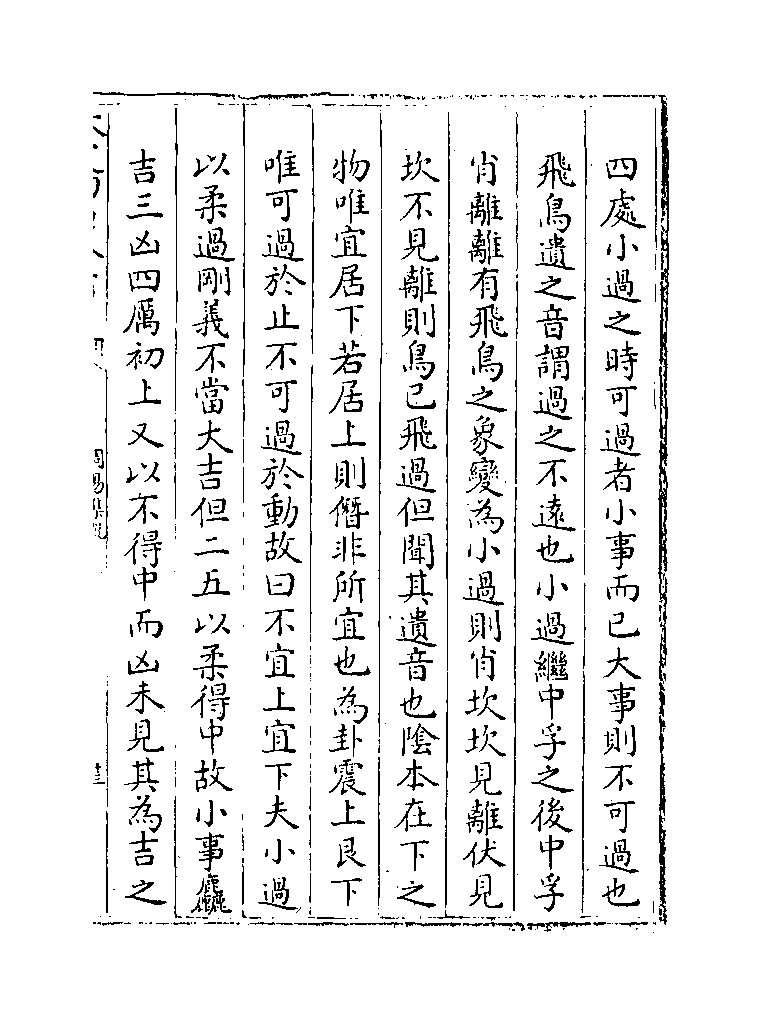 四處小過之時可過者小事而已大事則不可過也
飛鳥遺之音謂過之不遠也小過繼中孚之後中孚
肖離離有飛鳥之象變為小過則肖坎坎見離伏見
坎不見離則鳥已飛過但聞其遺音也陰本在下之
物唯宜居下若居上則僭非所宜也為卦震上艮下
唯可過於止不可過於動故曰不宜上宜下夫小過
以柔過剛義不當大吉但二五以柔得中故小事麤
吉三凶四厲初上又以不得中而凶未見其為吉之
周易集說